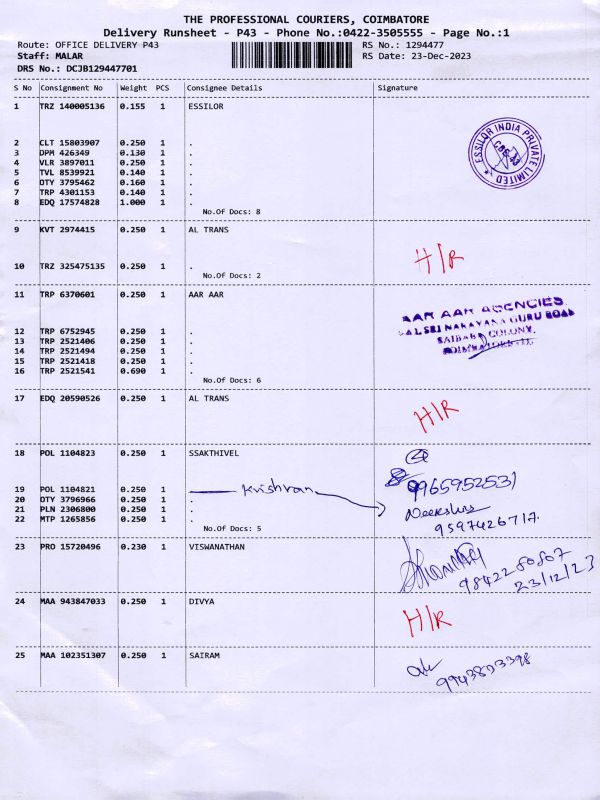 THE PROFESSIONAL COURIERS, COIMBATORE
Delivery Runsheet - P43 - Phone No.:0422-3505555 - Page No.:1
Route: OFFICE DELIVERY P43 RS No.: 1294477
Staff: MALAR RS Date: 23-Dec-2023
DRS No.: DCJB129447701
S No Consignment No Weight PCS Consignee Details Signature
1 TRZ 140005136 0.155 1 ESSILOR
ESSILOR INDIA PRIVATE LIMITED
2 CLT 15803907 0.250 1 .
3 DPM 426349 0.130 1 .
4 VLR 3897011 0.250 1 .
5 TVL 8539921 0.140 1 .
6 OTY 3795462 0.160 1 .
7 TRP 4301153 0.140 1 .
8 EDQ 17574828 1.000 1 .
No.Of Docs: 8
9 KVT 2974415 0.250 1 AL TRANS
H/R
10 TRZ 325475135 0.250 1 .
No.Of Docs: 2
11 TRP 6370601 0.250 1 AAR AAR
AAR AAR AGENCIES
SRI NARAYANA GURU ROAD
SAIBABA COLONY,
12 TRP 6752945 0.250 1 .
13 TRP 2521406 0.250 1 .
14 TRP 2521494 0.250 1 .
15 TRP 2521418 0.250 1 .
16 TRP 2521541 0.690 1 .
No.Of Docs: 6
17 EDQ 20590526 0.250 1 AL TRANS
H/R
18 POL 1104823 0.250 1 SSAKTHIVEL
4
9965952531
19 POL 1104821 0.250 1 Krishnan
20 OTY 3796966 0.250 1 .
21 PLN 2306800 0.250 1 .
22 MTP 1265856 0.250 1 .
9597426717
No.Of Docs: 5
23 PRO 15720496 0.230 1 VISWANATHAN
9842280807
23/12/23
24 MAA 943847033 0.250 1 DIVYA
H/R
25 MAA 102351307 0.250 1 SAIRAM
9943893398